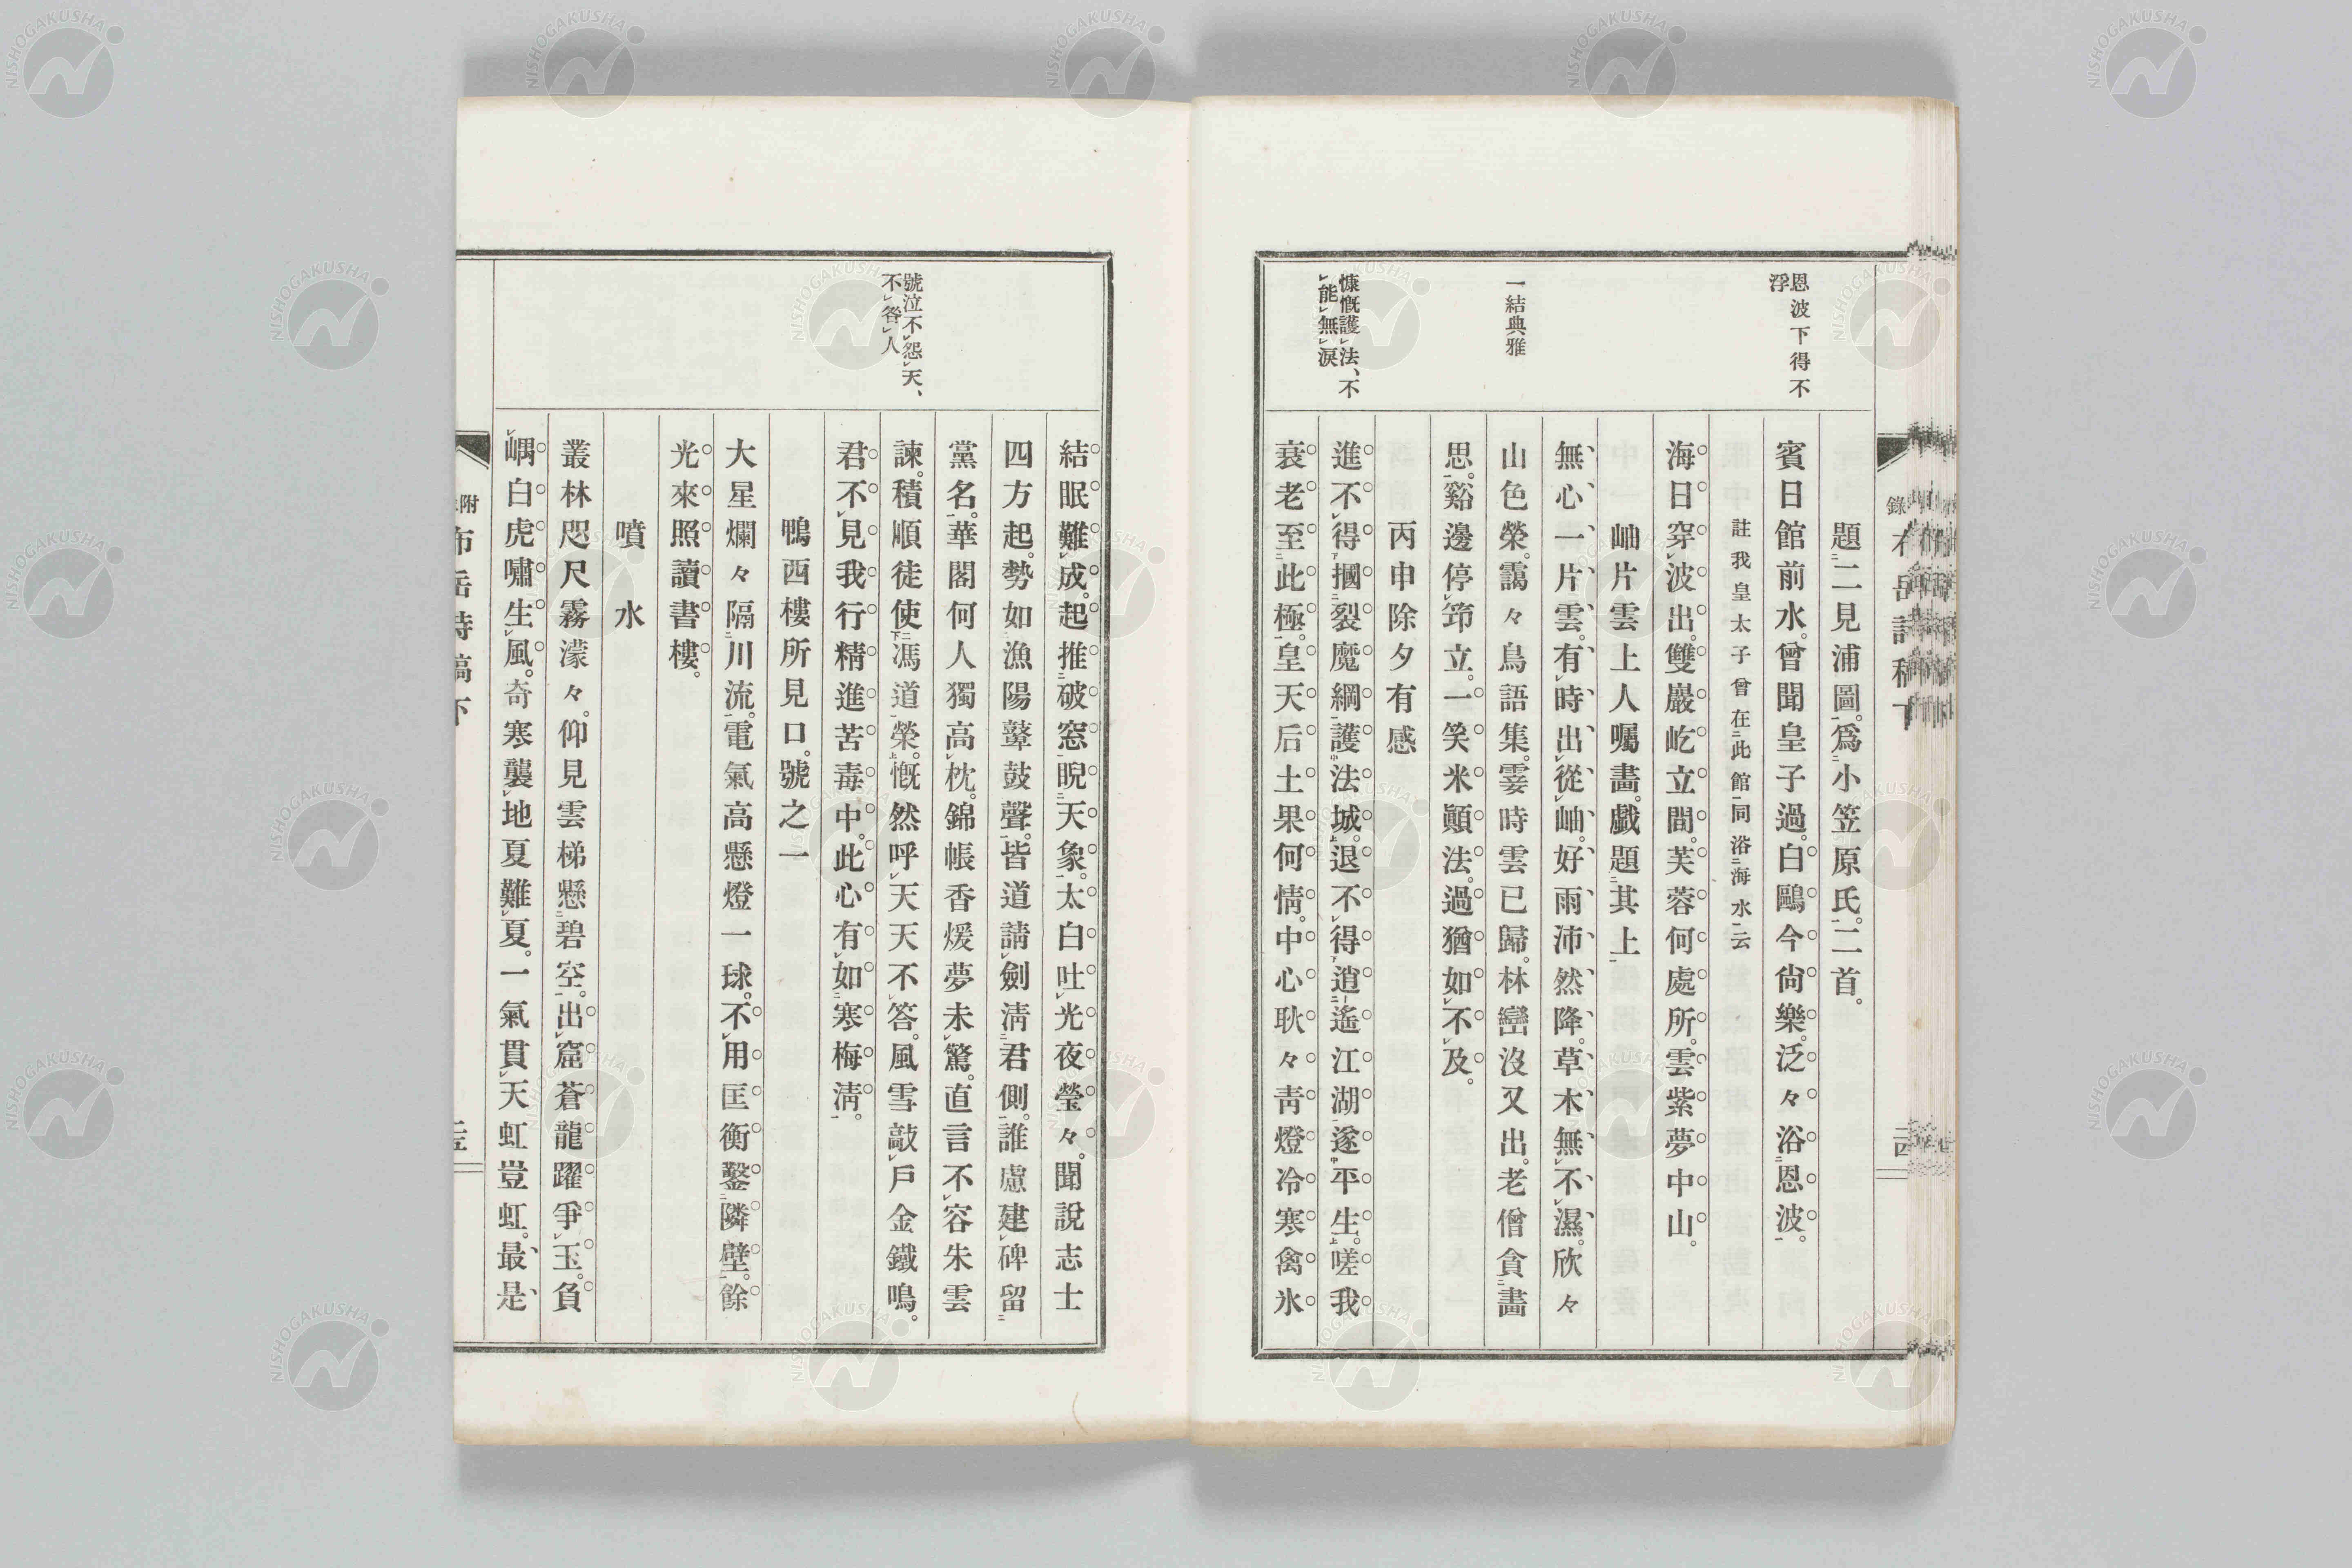 恩波下得不
浮
一結典雅
慷慨護法、不
能無淚
題二見浦圖。爲小笠原氏。二首。
賓日館前水。曾聞皇子過。白鷗今尙樂。泛々浴恩波。
註我皇太子曾在此館同浴海水云
海日穿波出。雙巖屹立間。芙蓉何處所。雲紫夢中山。
岫片雲上人囑畵。戲題其上
無心一片雲。有時出從岫。好雨沛然降。草木無不濕。欣々
山色榮。靄々鳥語集。霎時雲已歸。林巒沒又出。老僧貪畵
思。谿邊停筇立。一笑米顚法。過猶如不及。
丙申除夕有感
進不得摑裂魔綱護法城。退不得逍遙江湖遂平生。嗟我
衰老至此極。皇天后土果何情。中心耿々靑燈冷寒禽氷
號泣不怨天、
不咎人
結眠難成。起推破窓睨天象。太白吐光夜瑩々。聞說志士
四方起。勢如漁陽鼙鼓聲。皆道請劍淸君側。誰慮建碑留
黨名。華閣何人獨高枕。錦帳香煖夢未驚。直言不容朱雲
諫。積順徒使馮道榮。慨然呼天天不答。風雪敲戶金鐵鳴。
君不見我行精進苦毒中。此心有如寒梅淸。
鴨西樓所見口號之一
大星爛々隔川流。電氣高懸燈一球。不用匡衡鑿隣壁。餘
光來照讀書樓。
噴水
叢林咫尺霧濛々。仰見雲梯懸碧空。出窟蒼龍躍爭玉。負
嵎白虎嘯生風。奇寒襲地夏難夏。一氣貫天虹豈虹。最是